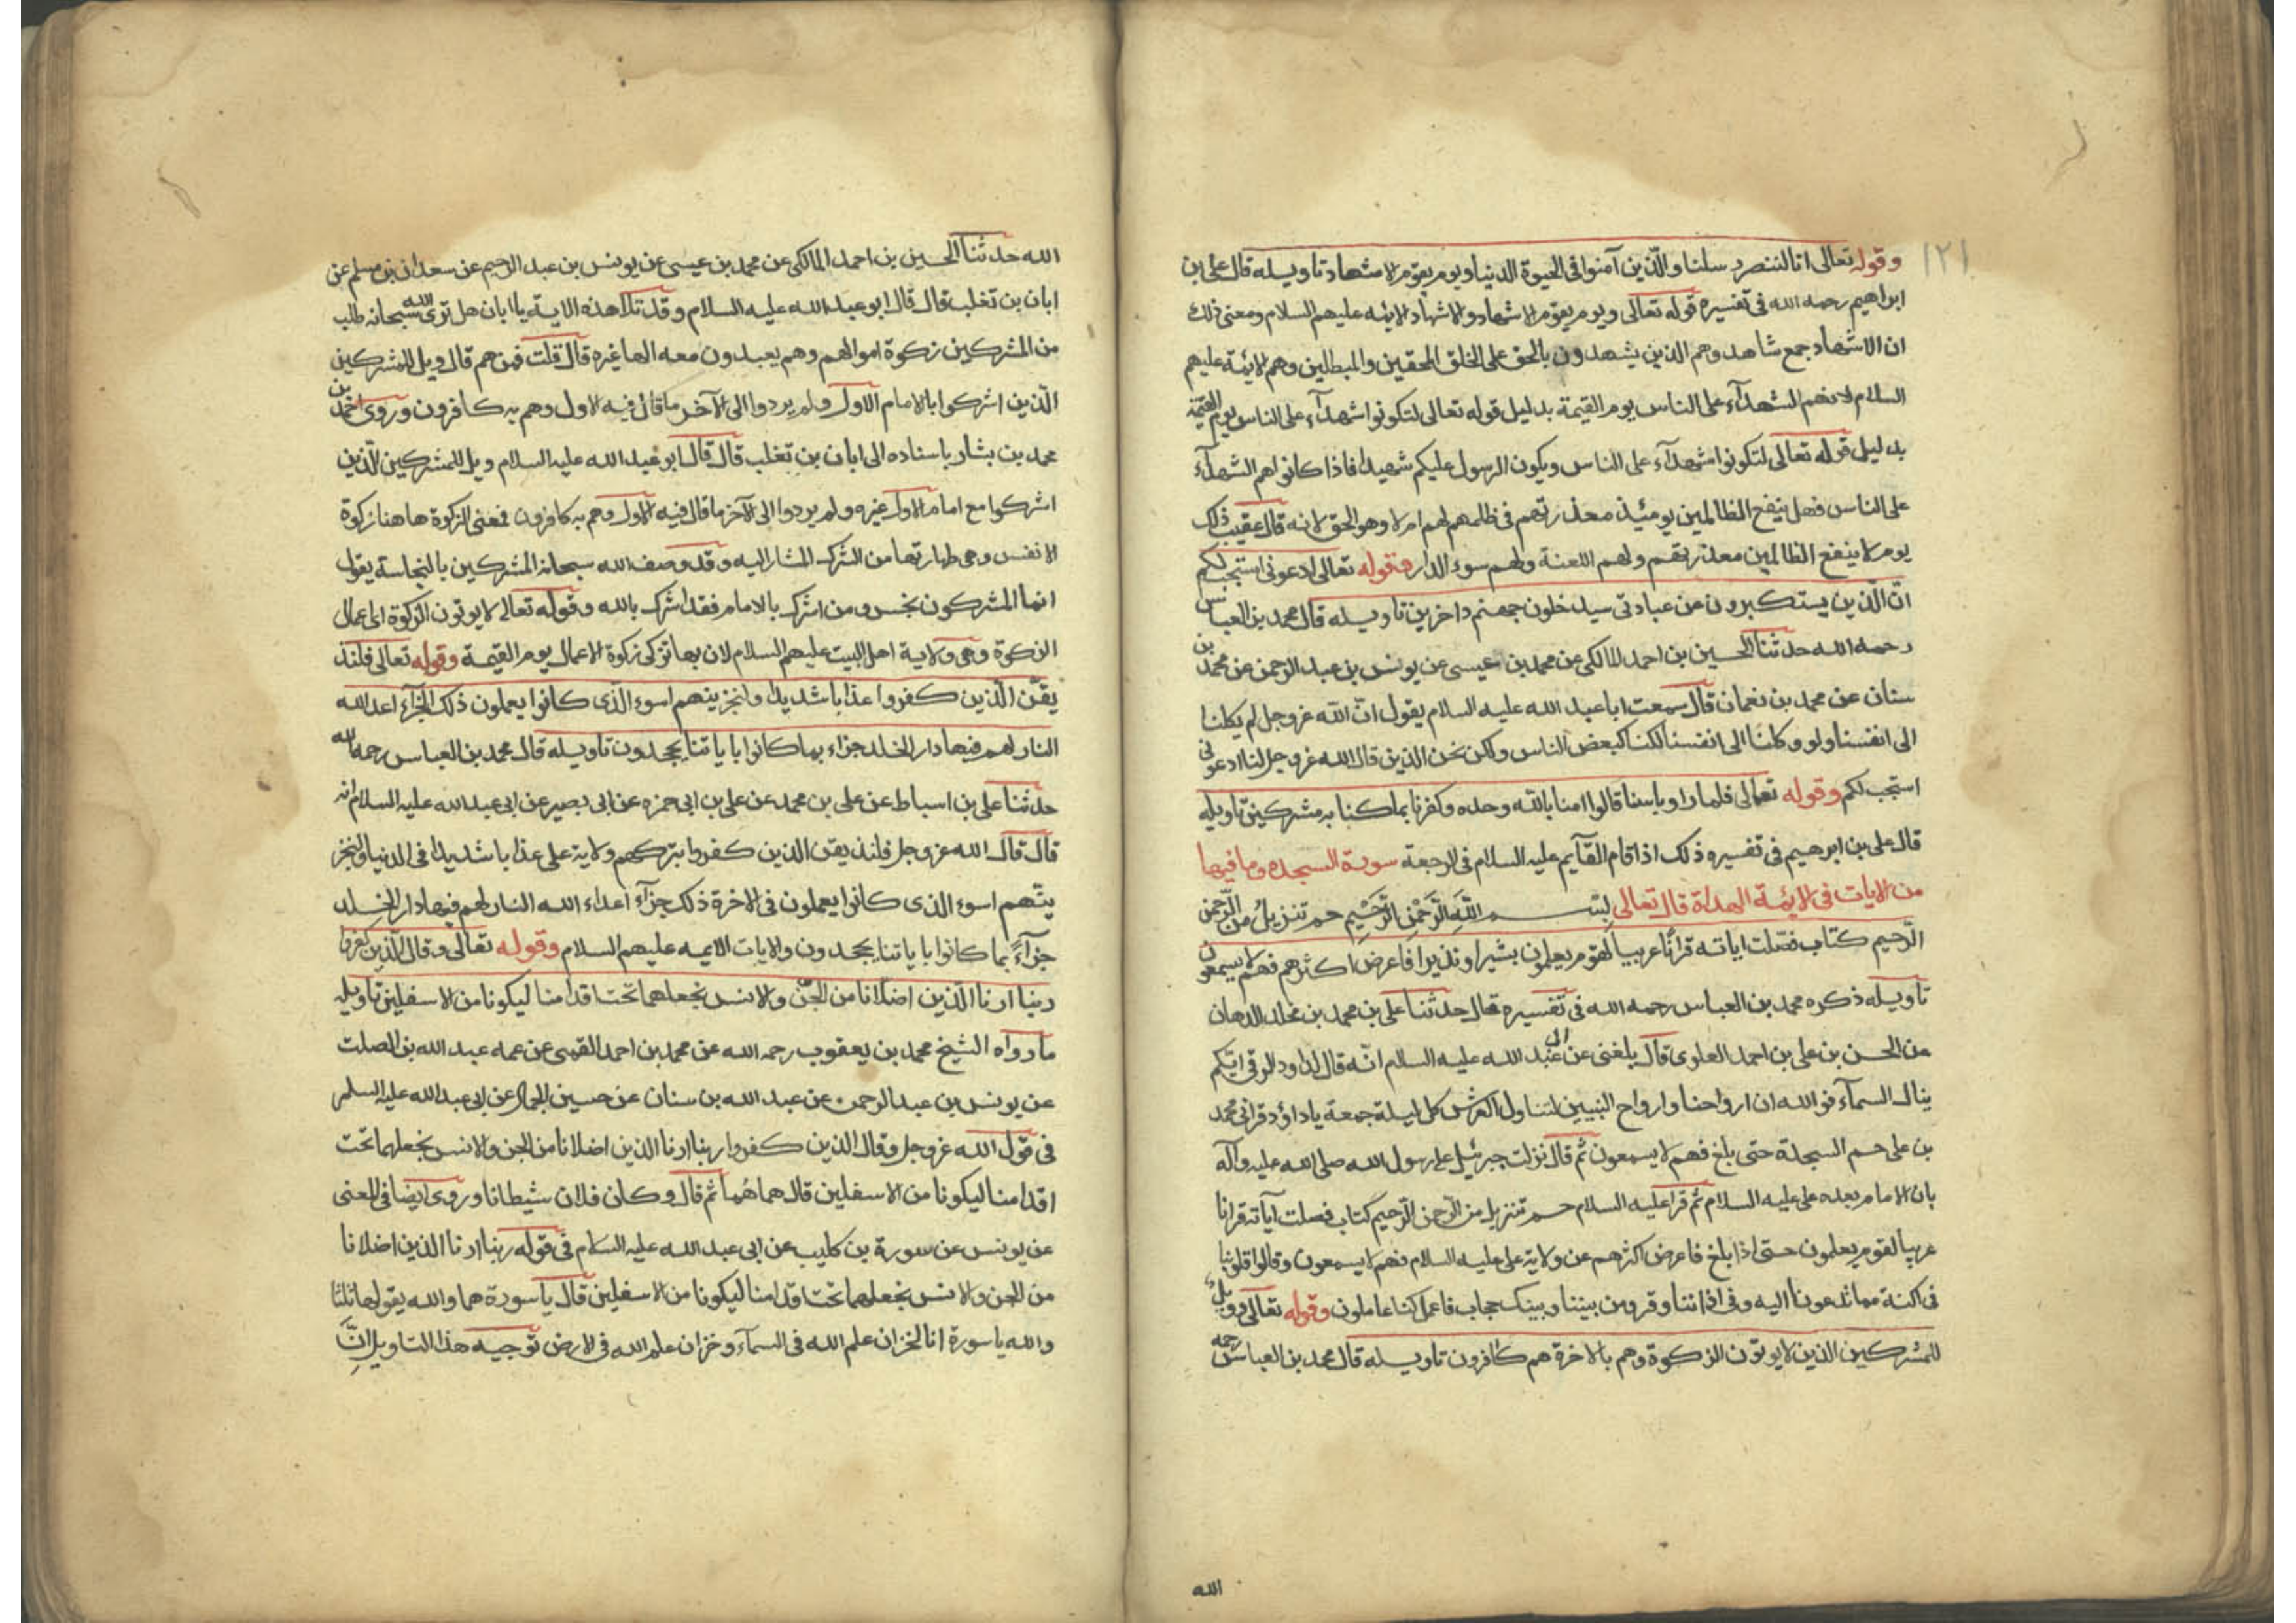 ١٢١
وقوله تعالى انا لننصر رسلنا والّذين آمنوا فى الحيوة الدنيا ويوم يقوم الاشهاد تاويله قال على بن
ابراهيم رحمه الله فى تفسيره قوله تعالى ويوم يقوم الاشهاد والاشهاد الائمه عليهم السلام ومعنى ذلك
ان الاشهاد جمع شاهد وهم الذين يشهدون بالحق على الخلق المحقين والمبطلين وهم الائمة عليهم
السلام لانهم الشهدآء على الناس يوم القيمة بدليل قوله تعالى لتكونوا شهدآء على الناس يوم القيمة
بدليل قوله تعالى لتكونوا شهدآء على الناس ويكون الرسول عليكم شهيدا فاذا كانوا هم الشهدآء
على الناس فهل ينفع الظالمين يومئذ معذرتهم فى ظلمهم لهم ام لا وهو الحق لانه قال عقيب ذلك
يوم لا ينفع الظالمين معذرتهم ولهم اللعنة ولهم سوء الدار وقوله تعالى ادعونى استجب لكم
انّ الّذين يستكبرون عن عبادتى سيدخلون جهنم داخرين تاويله قال محمد بن العباس
رحمه الله حدثنا الحسين بن احمد المالكى عن محمد بن عيسى عن يونس بن عبد الرحمن عن محمد بن
سنان عن محمد بن نعمان قال سمعت ابا عبد الله عليه السلام يقول انّ الله عز وجل لم يكلنا
الى انفسنا ولو وكلنا الى انفسنا لكنا كبعض الناس ولكن نحن الذين قال الله عز وجل لنا ادعونى
استجب لكم وقوله تعالى فلما راوا باسنا قالوا امنا بالله وحده وكفرنا بما كنا به مشركين تاويله
قال على بن ابرهيم فى تفسيره ذلك اذا قام القآيم عليه السلام فى الرجعة سورة السجده وما فيها
من الايات فى الائمة الهداة قال تعالى بِسْمِ اللَّهِ الرَّحْمٰنِ الرَّحِيْمِ حم تنزيلٌ من الرّحمن
الرّحيم كتاب فصّلت اياته قرانًا عربيا لقوم يعلمون بشيرا ونذيرا فاعرض اكثرهم فهم لا يسمعون
تاويله ذكره محمد بن العباس رحمه الله فى تفسيره قال حدثنا على بن محمد بن مخلد الدهان
عن الحسن بن على بن احمد العلوى قال بلغنى عن ابى عبد الله عليه السلام انّه قال لداود الرقى ايّكم
ينال السمآء فوالله ان ارواحنا وارواح النبيين لتناول العرش كل ليلة جمعة يا داؤد قرا ابى محمد
بن على حم السجدة حتى بلغ فهم لا يسمعون ثم قال نزلت جبرئيل على رسول الله صلى الله عليه وآله
بان الامام بعده على عليه السلام ثم قرا عليه السلام حم تنزيل من الرّحمن الرّحيم كتاب فصلت آياته قرانا
عربيا لقوم يعلمون حتى اذا بلغ فاعرض اكثرهم عن ولاية على عليه السلام فهم لا يسمعون وقالوا قلوبنا
فى اكنة مما تدعونا اليه وفى اذاننا وقر ومن بيننا وبينك حجاب فاعمل اننا عاملون وقوله تعالى وويل
للمشركين الذين لا يوتون الزكوة وهم بالاخرة هم كافرون تاويله قال محمد بن العباس رحمه
الله
الله حدثنا الحسين بن احمد المالكى عن محمد بن عيسى عن يونس بن عبد الرحيم عن سعدان بن مسلم عن
ابان بن تغلب قال قال ابو عبد الله عليه السلام وقد تلا هذه الاية يا ابان هل ترى الله سبحانه طلب
من المشركين زكوة اموالهم وهم يعبدون معه الها غيره قال قلت فمن هم قال ويل للمشركين
الّذين اشركوا بالامام الاول ولم يردوا الى الآخر ما قال فيه الاول وهم به كافرون وروى احمد بن
محمد بن بشار باسناده الى ابان بن تغلب قال قال ابو عبد الله عليه السلام ويل للمشركين الّذين
اشركوا مع امام الاول غيره ولم يردوا الى الآخر ما قال فيه الاول وهم به كافرون فمعنى الزكوة هاهنا زكوة
الانفس وهى طهارتها من الشرك المشار اليه وقد وصف الله سبحانه المشركين بالنجاسة يقول
انما المشركون نجس ومن اشرك بالامام فقد اشرك بالله وقوله تعالى لا يوتون الزكوة اى اعمال
الزكوة وهى ولاية اهل البيت عليهم السلام لان بها تزكى زكوة الاعمال يوم القيمة وقوله تعالى فلنذ
يقنّ الّذين كفروا عذابا شديدا ولنجزينهم اسوء الّذى كانوا يعملون ذلك الجزآء اعد الله
النار لهم فيها دار الخلد جزاء بما كانوا باياتنا يجحدون تاويله قال محمد بن العباس رحمه الله
حدثنا على بن اسباط عن على بن محمد عن على بن ابى حمزه عن ابى بصير عن ابى عبد الله عليه السلام انه
قال قال الله عز وجل فلنذيقن الذين كفروا بتركهم ولاية على عذابا شديدا فى الدنيا ولنجز
ينّهم اسوء الذى كانوا يعملون فى الاخرة ذلك جزآء اعداء الله النار لهم فيها دار الخلد
جزآءً بما كانوا باياتنا يجحدون والايات الايمه عليهم السلام وقوله تعالى وقال الّذين كفروا
ربنا ارنا الّذين اضلانا من الجنّ والانس نجعلهما تحت اقدامنا ليكونا من الاسفلين تاويله
ما رواه الشيخ محمد بن يعقوب رحمه الله عن محمد بن احمد القمى عن عمه عبد الله بن الصلت
عن يونس بن عبد الرحمن عن عبد الله بن سنان عن حسين الجمال عن ابى عبد الله عليه السلم
فى قول الله عز وجل وقال الذين كفروا ربنا ارنا الذين اضلانا من الجن والانس نجعلهما تحت
اقدامنا ليكونا من الاسفلين قال هما هُما ثم قال وكان فلان شيطانا وروى ايضا فى المعنى
عن يونس عن سورة بن كليب عن ابى عبد الله عليه السلام فى قوله ربنا ارنا الذين اضلانا
من الجن والانس نجعلهما تحت اقدامنا ليكونا من الاسفلين قال يا سورة هما والله يقولها ثلثا
والله يا سورة انا لخزان علم الله فى السمآء وخزان علم الله فى الارض توجيه هذا التاويل انَّ